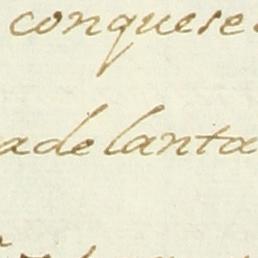 conquese
adelanta